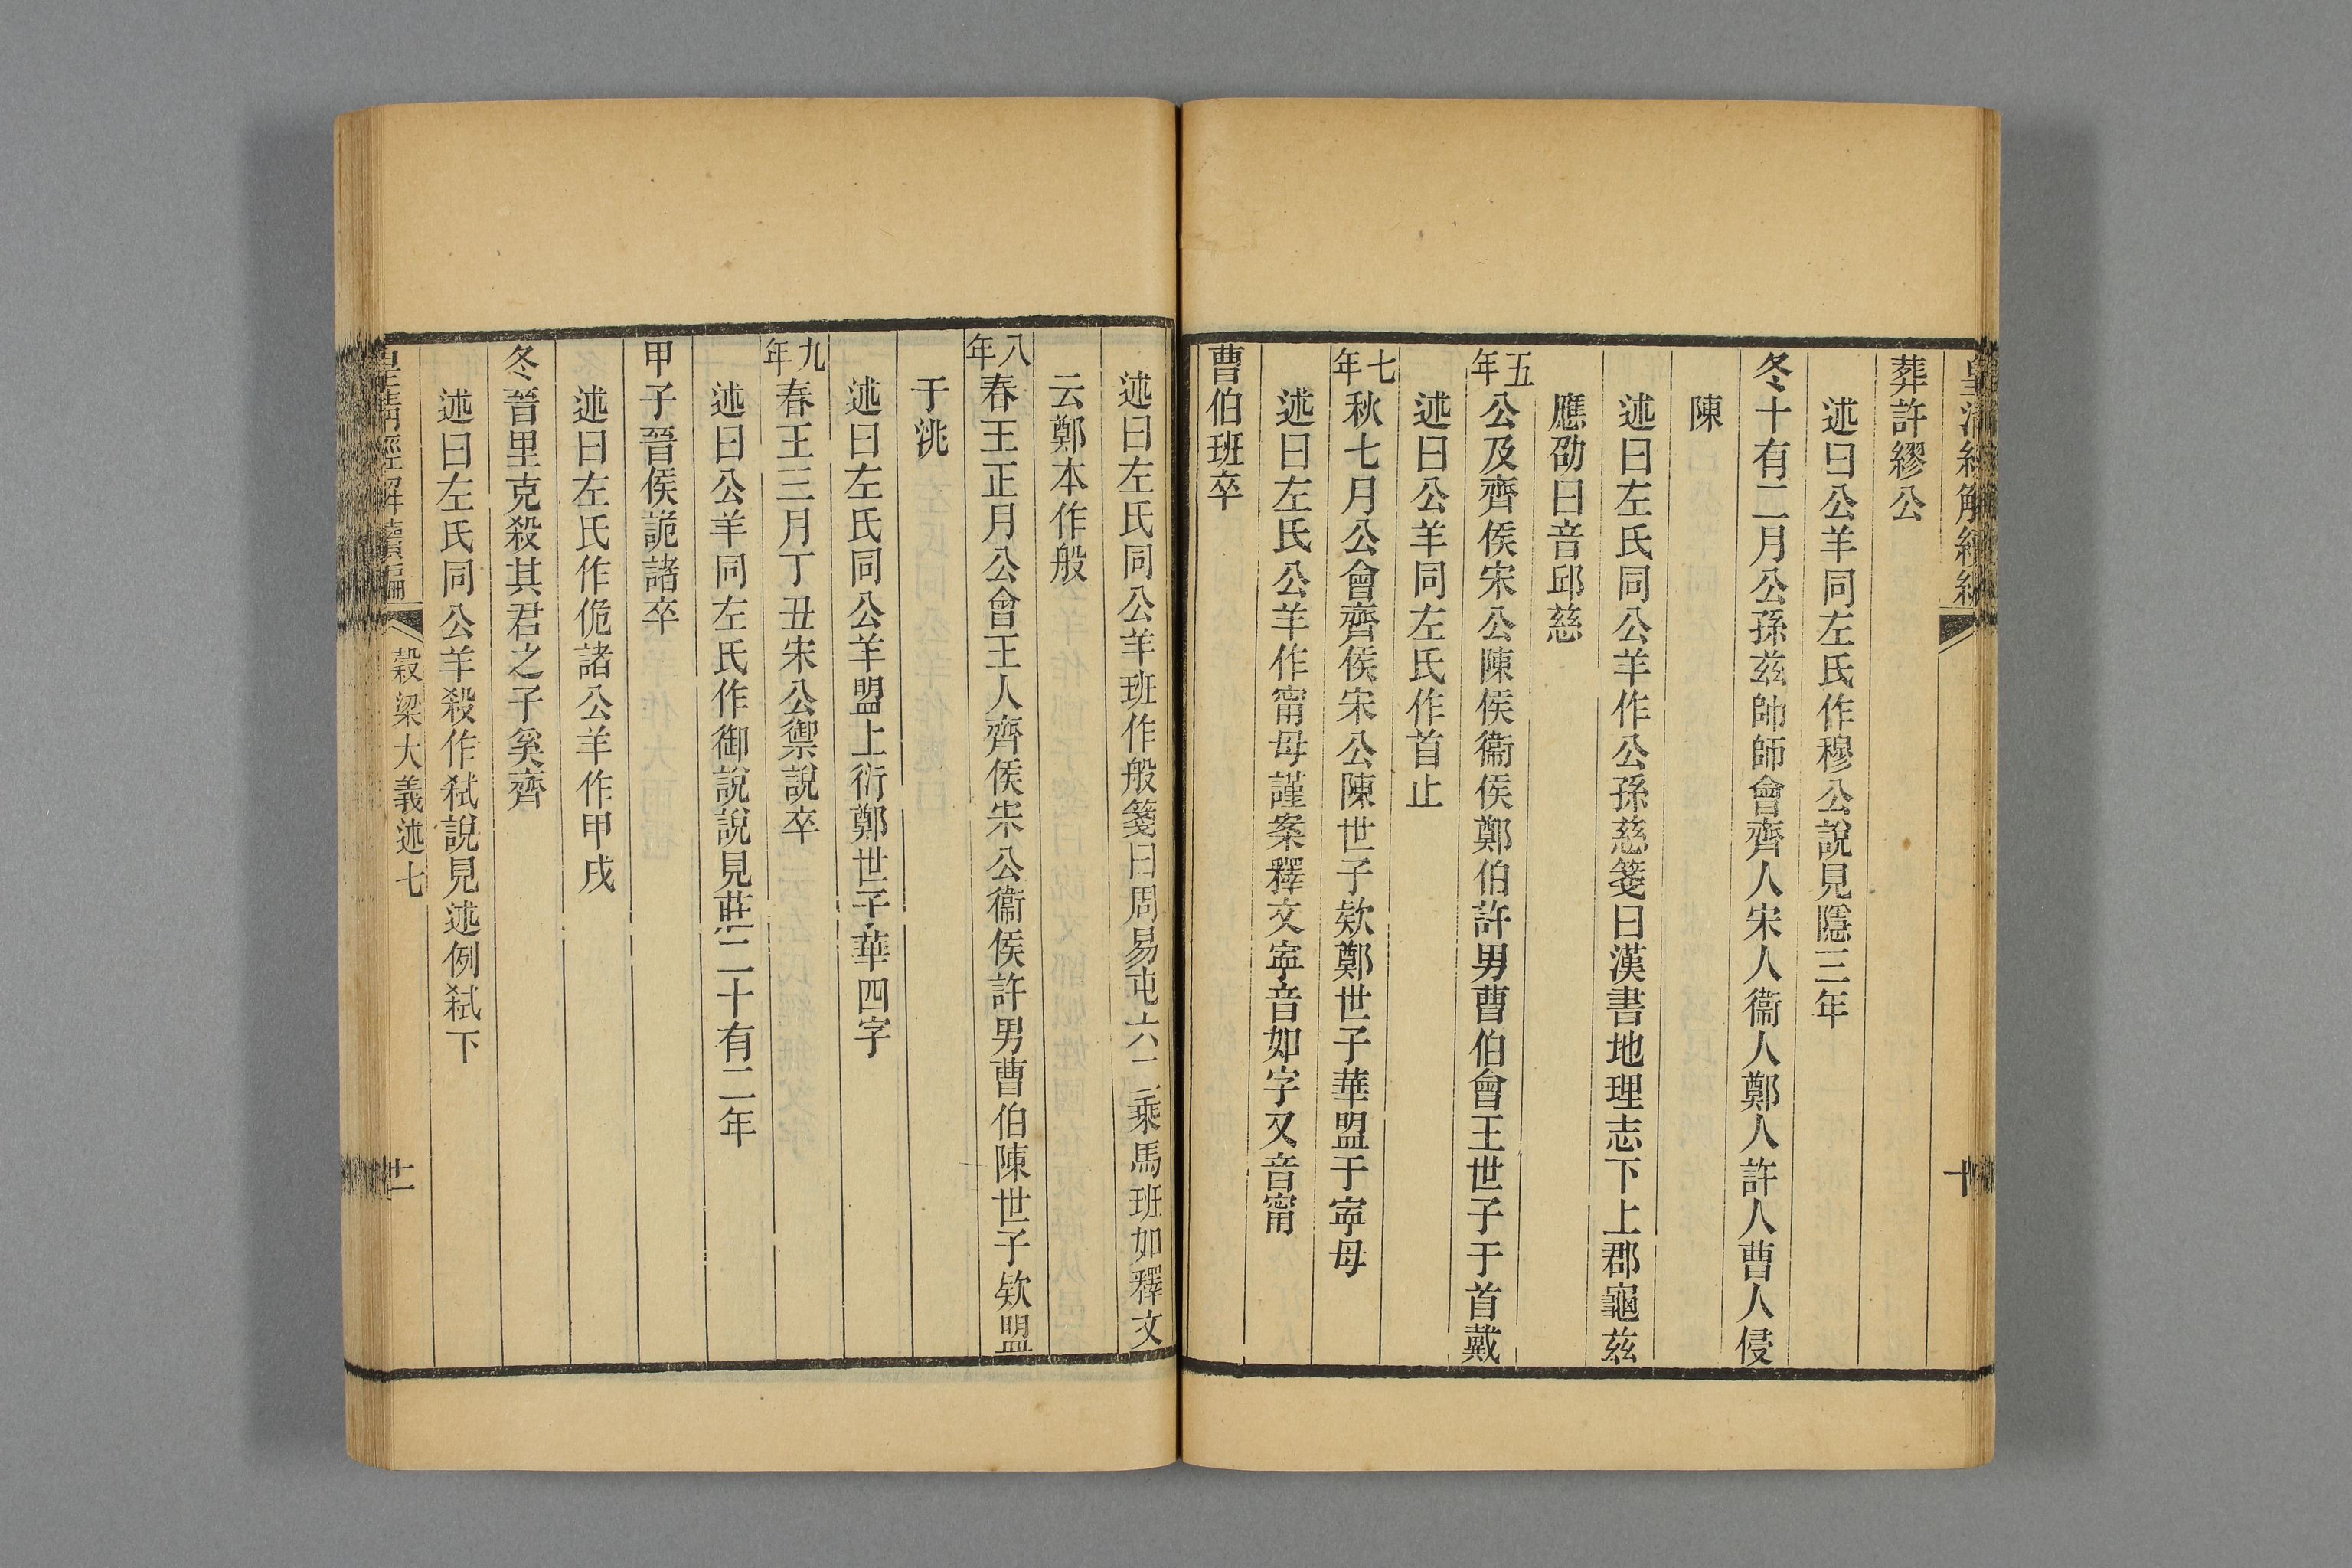 皇清經解續編
葬許繆公
述曰公羊同左氏作穆公說見隱三年
冬十有二月公孫茲帥師會齊人宋人衞人鄭人許人曹人侵
陳
述曰左氏同公羊作公孫慈箋曰漢書地理志下上郡龜茲
應劭曰音邱慈
五年公及齊侯宋公陳侯衞侯鄭伯許男曹伯會王世子于首戴
述曰公羊同左氏作首止
七年秋七月公會齊侯宋公陳世子欵鄭世子華盟于寧母
述曰左氏公羊作甯母謹案釋文寧音如字又音甯
曹伯班卒
述曰左氏同公羊班作般箋曰周易屯六二乘馬班如釋文
云鄭本作般
八年春王正月公會王人齊侯宋公衞侯許男曹伯陳世子欵盟
于洮
述曰左氏同公羊盟上衍鄭世子華四字
九年春王三月丁丑宋公禦說卒
述曰公羊同左氏作御說說見莊二十有二年
甲子晉侯詭諸卒
述曰左氏作佹諸公羊作甲戌
冬晉里克殺其君之子奚齊
述曰左氏同公羊殺作弒說見述例弒下
皇清經解續編 穀梁大義述七 廿一